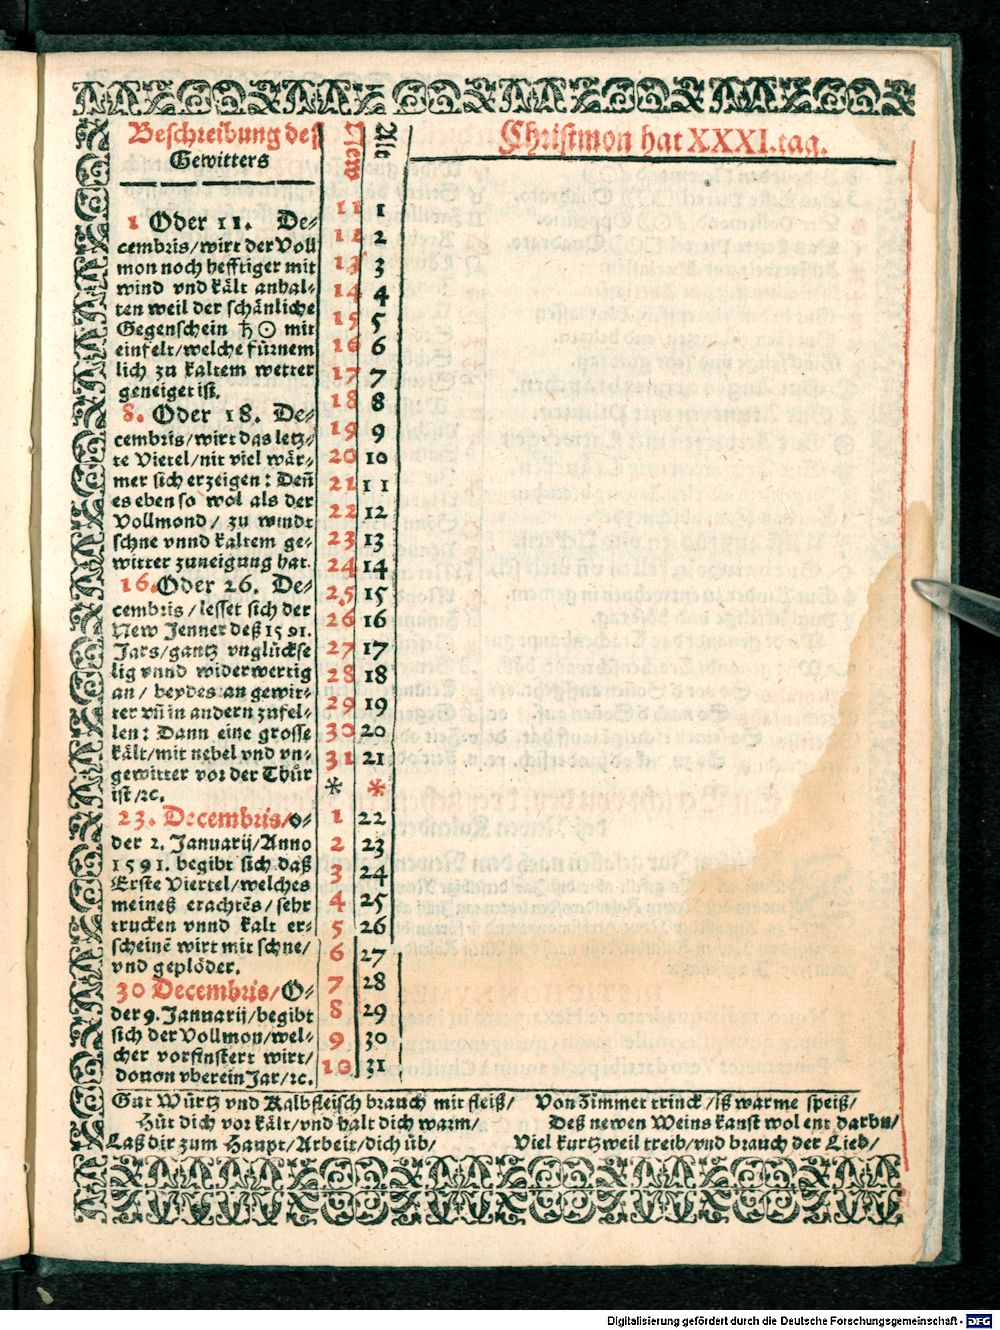 Beschreibung deß
Gewitters
New
Alte
Christmon hat XXXI. tag.
1 Oder 11. De-
cembris/wirt der Voll
mon noch hefftiger mit
wind vnd kält anhal-
ten weil der schänliche
Gegenschein ♄ ☉ mit
einfelt/welche fürnem
lich zu kaltem wetter
geneiget ist.
8. Oder 18. De-
cembris/wirt das letz-
te Viertel/nit viel wär-
mer sich erzeigen: Deñ
es eben so wol als der
Vollmond/ zu windt
schne vnnd kaltem ge-
witter zuneigung hat.
16. Oder 26. De-
cembris/ lesset sich der
New Jenner deß 1591.
Jars/gantz vnglückse
lig vnnd widerwertig
an/ beydes an gewit-
ter vñ in andern zufel-
len: Dann eine grosse
kält/mit nebel vnd vn-
gewitter vor der Thür
ist/ꝛc.
23. Decembris/o-
der 2. Januarij/Anno
1591. begibt sich daß
Erste Viertel/welches
meineß erachtẽs/ sehr
trucken vnnd kalt er-
scheinẽ wirt mit schne/
vnd geplöder.
30 Decembris/O-
der 9. Januarij/begibt
sich der Vollmon/wel-
cher vorfinstert wirt/
douon vberein Jar/ꝛc.
11 1
12 2
13 3
14 4
15 5
16 6
17 7
18 8
19 9
20 10
21 11
22 12
23 13
24 14
25 15
26 16
27 17
28 18
29 19
30 20
31 21
* *
1 22
2 23
3 24
4 25
5 26
6 27
7 28
8 29
9 30
10 31
Gut Würtz vnd Kalbfleisch brauch mit fleiß/
Hüt dich vor kält/vnd halt dich warm/
Laß dir zum Haupt/Arbeit/dich üb/
Von Zimmet trinck/iß warme speiß/
Deß newen Weins kanst wol ent darbn/
Viel kurtzweil treib/vnd brauch der Lieb/
Digitalisierung gefördert durch die Deutsche Forschungsgemeinschaft - DFG